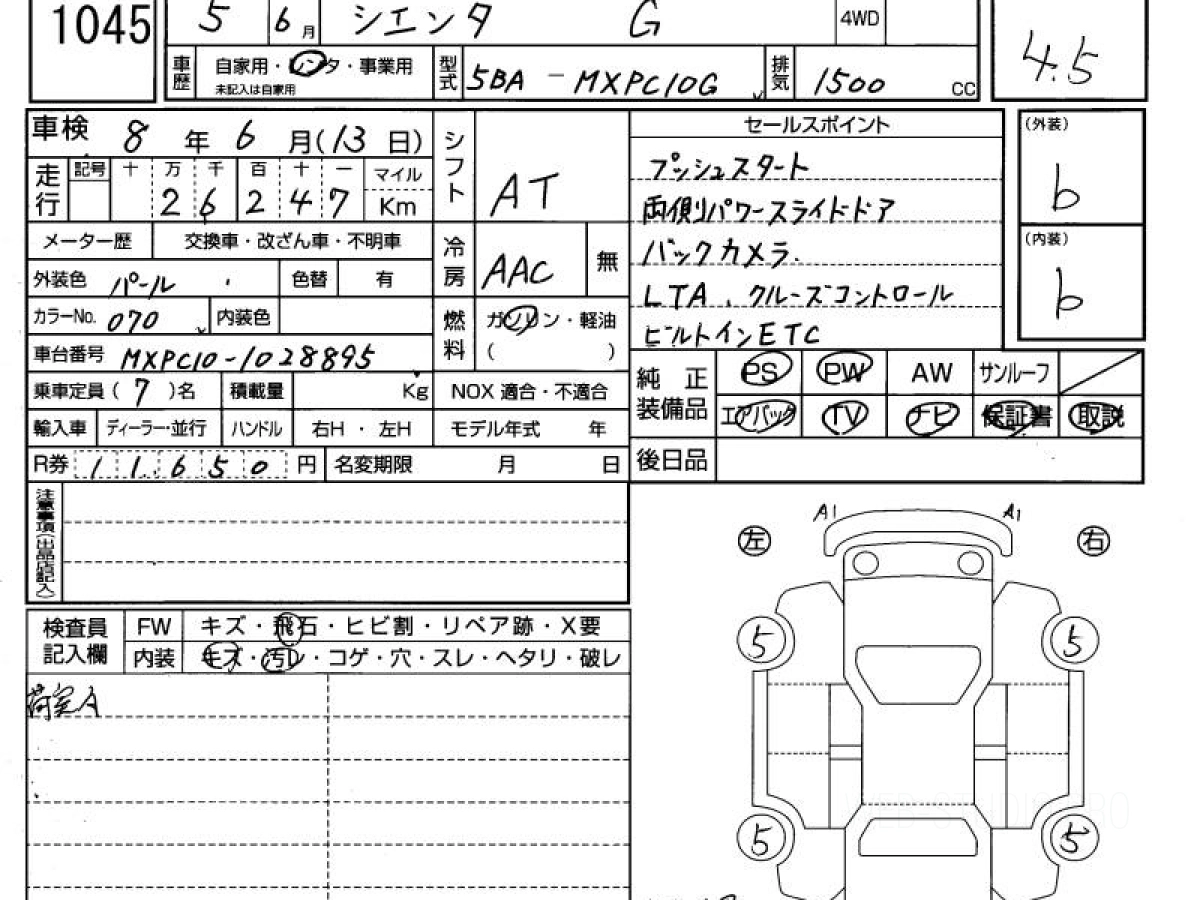 1045
5 6月 シエンタ G 4WD
車歴 自家用・レンタ・事業用 型式 5BA - MXPC10G 排気 1500 CC
未記入は自家用
4.5
車検 8 年 6 月(13 日)
シフト AT
走行 記号 十 万 千 百 十 一 マイル
2 6 2 4 7 Km
メーター歴 交換車・改ざん車・不明車
冷房 AAC 無
外装色 パール 色替 有
カラーNo. 070 内装色
燃料 ガソリン・軽油
( )
車台番号 MXPC10-1028895
乗車定員(7)名 積載量 Kg NOX 適合・不適合
輸入車 ディーラー・並行 ハンドル 右H・左H モデル年式 年
R券 11,650 円 名変期限 月 日
セールスポイント
プッシュスタート
両側パワースライドドア
バックカメラ.
LTA、クルーズコントロール
ビルトインETC
(外装)
b
(内装)
b
純正装備品 PS PW AW サンルーフ
エアバック TV ナビ 保証書 取説
後日品
注意事項(出品店記入)
検査員記入欄 FW キズ・飛石・ヒビ割・リペア跡・X要
内装 キズ・汚レ・コゲ・穴・スレ・ヘタリ・破レ
荷室A
A1 A1
左 右
5 5
5 5